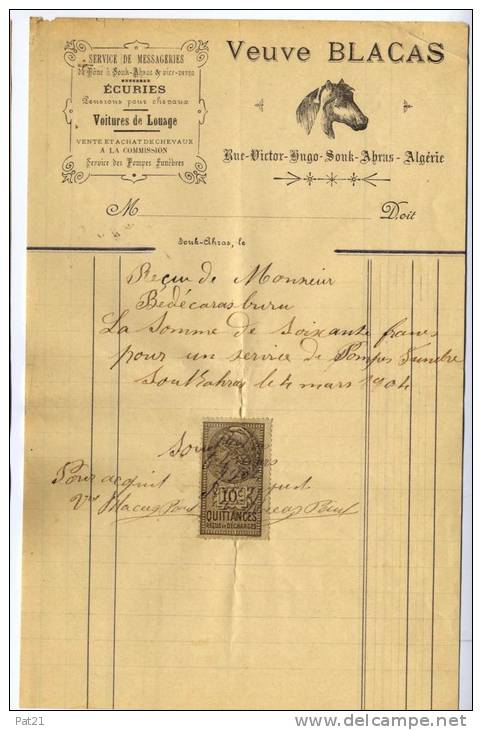 SERVICE DE MESSAGERIES
de Bône à Souk-Ahras & vice-versa
ÉCURIES
Pensions pour chevaux
Voitures de Louage
VENTE ET ACHAT DE CHEVAUX
A LA COMMISSION
Service des Pompes Funèbres
Veuve BLACAS
Rue-Victor-Hugo-Souk-Ahras-Algérie
M Doit
Souk-Ahras, le
Reçu de Monsieur
Bédécarasburu
La Somme de Soixante francs
pour un service de Pompes Funebre
Soukahras le 4 mars 1904
Pour acquit
Vve Blacas
10c
QUITTANCES
REÇUS ET DÉCHARGES
Pat21
www.delcampe.net